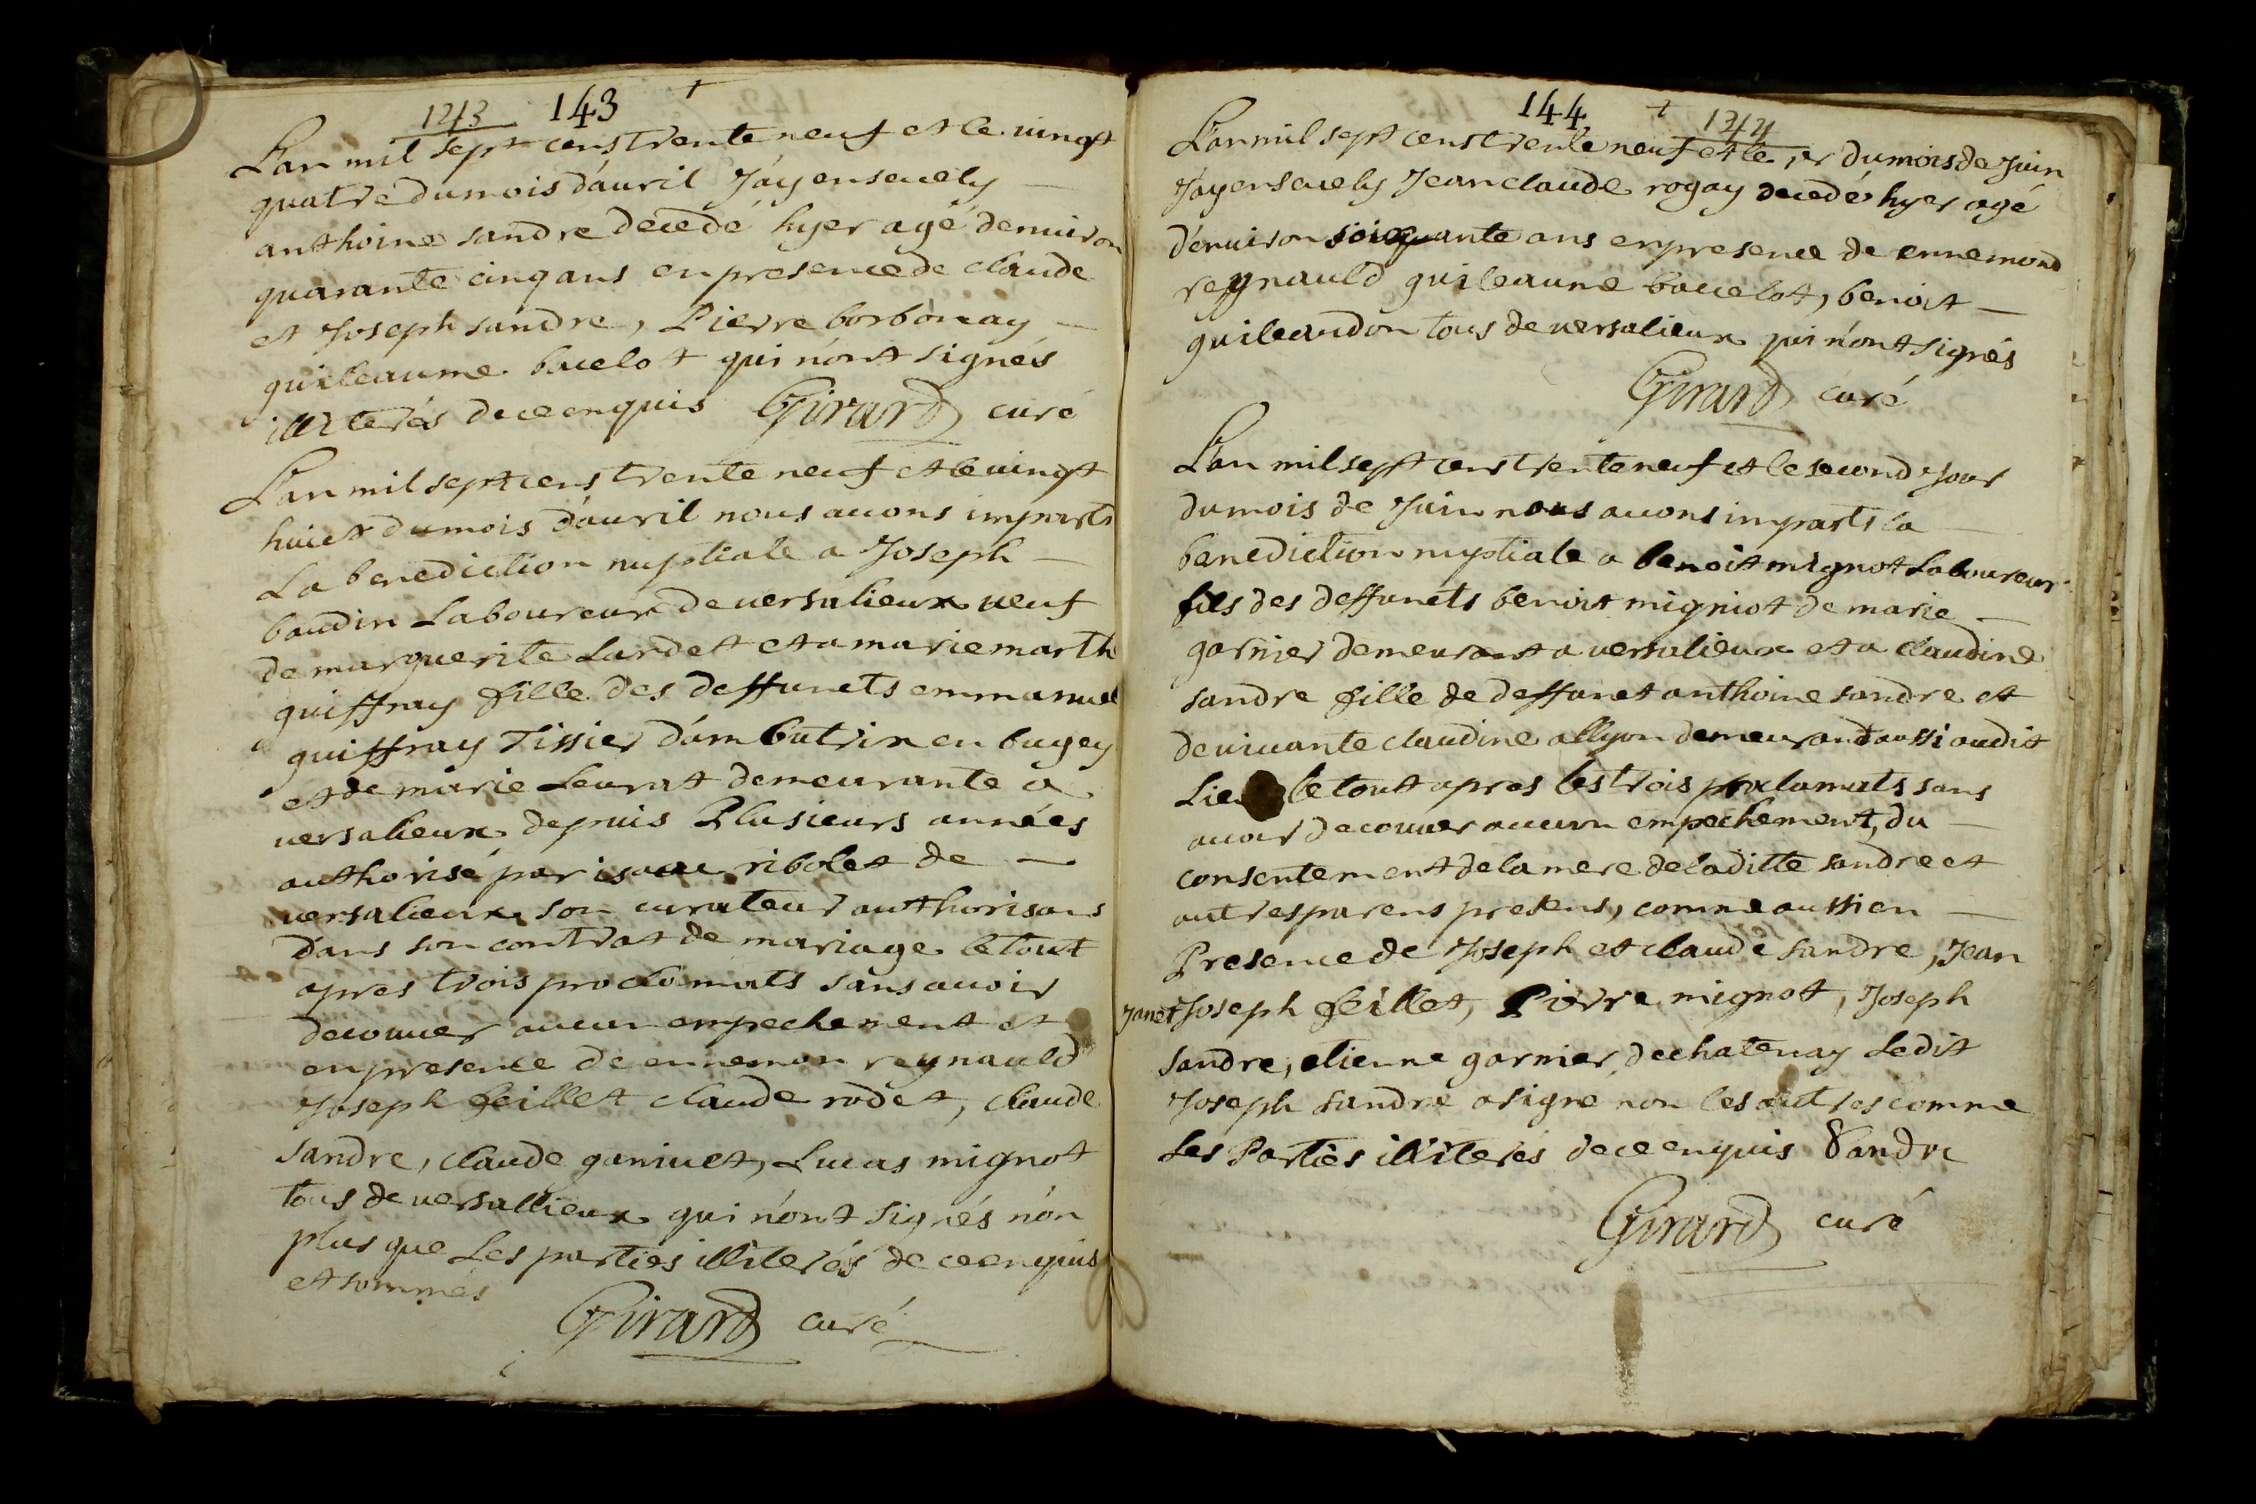 1243 143 +
L'an mil sept cens trente neuf et le vingt
quatre du mois d'avril J'ay ensevely
anthoine sandre decedé hyer agé d'environ
quarante cinq ans en presence de claude
et Joseph sandre, Pierre borbonay
guileaume bacelot qui n'ont signés
illiterés de ce enquis Girard curé
L'an mil sept cens trente neuf et le vingt
huict du mois d'avril nous avons imparti
La benediction nuptiale a Joseph
baudin Laboureur de versalieux veuf
de marguerite Lardet et a marie marth
guiffray fille des deffunets emmanuel
guiffray Tissier d'ambutrix en bugey
et de marie Levrat demeurante a
versalieux depuis Plusieurs années
authorisé par isaac ribolet de
versalieux son curateur authorisans
dans son contrat de mariage le tout
apres trois proclamats sans avoir
decouver aucun empechement et
en presence de ennemon reynauld
Joseph feillet claude rodet, claude
sandre, claude ganivet, Lucas mignot
tous de versallieux qui n'ont signés non
plus que Les parties illiterés de ce enquis
et sommés
Girard curé
144 + 1244
L'an mil sept cens trente neuf et le 1er du mois de Juin
J'ay ensevely Jean claude rogay decedé hyer agé
d'environ soixante ans en presence de ennemond
reynauld guileaume bacelot, benoit
guileaudon tous de versalieux qui n'ont signés
Girard curé
L'an mil sept cens trente neuf et le second Jour
du mois de Juin nous avons imparti la
benediction nuptiale a benoit mignot Laboureur
fils des deffunets benoit migniot de marie
garnier demeurant a versalieux et a claudine
sandre fille de deffunet anthoine sandre et
de vivante claudine allyon demeurand aussi audit
Lieu le tout apres les trois proclamats sans
avoir decouver aucun empechement, du
consentement de la mere de laditte sandre et
autres parens presens, comme aussi en
Presence de Joseph et claude sandre, Jean
Janet Joseph feillet, Pierre mignot, Joseph
sandre, etienne garnier de chatenay Ledit
Joseph sandre a signé non les autres comme
Les Parties illiterés de ce enquis Sandre
Girard curé